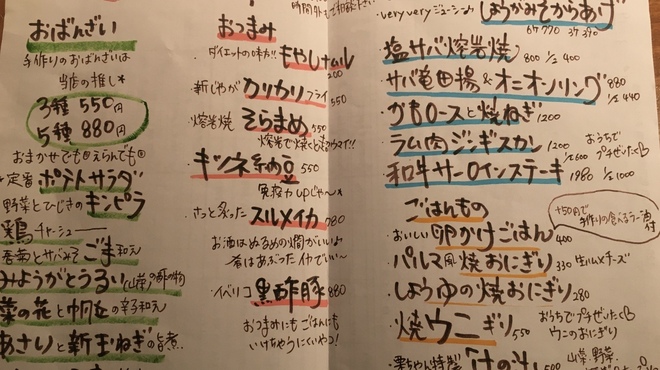 おばんざい
手作りのおばんざいは
当店の推し*
3種 550円
5種 880円
おまかせでも えらんでも
定番 ポテトサラダ
野菜とひじきのキンピラ
鶏チャーシュー
春菊とサバみそごま和え
みょうがとうるい(山菜)の酢の物
菜の花と帆立の辛子和え
あさりと新玉ねぎの旨煮
おつまみ
ダイエットの味方!! もやしナムル
200
新じゃがカリカリフライ 550
熔岩焼 そらまめ 550
熔岩で焼くと
キツネ納豆 550
免疫力upじゃ〜*
さっと炙った スルメイカ 980
お酒はぬるめの燗がいい♪
肴はあぶったイカでいい〜
イベリコ 黒酢豚 880
おつまみにも ごはんにも
いけちゃうにくいやつ!
・very veryジューシー♪ しょうがみそからあげ
6ケ 770 3ケ 390
・塩サバ熔岩焼 800 1/2 400
・サバ竜田揚&オニオンリング 880
1/2 440
・かもロースと焼ねぎ 1200
・ラム肉ジンギスカン 1200 おうちで
1/2 600 プチぜいたく
・和牛サーロインステーキ 1980 1/2 1000
ごはんもの
+50円で
手作りの食べるラー油
付
おいしい 卵かけごはん 400
・パルマ風焼おにぎり 330 生ハム×チーズ
・しょうゆの焼おにぎり 280
・焼ウニぎり 550 おうちでプチぜいたく
ウニのおにぎり
500 山菜・野菜